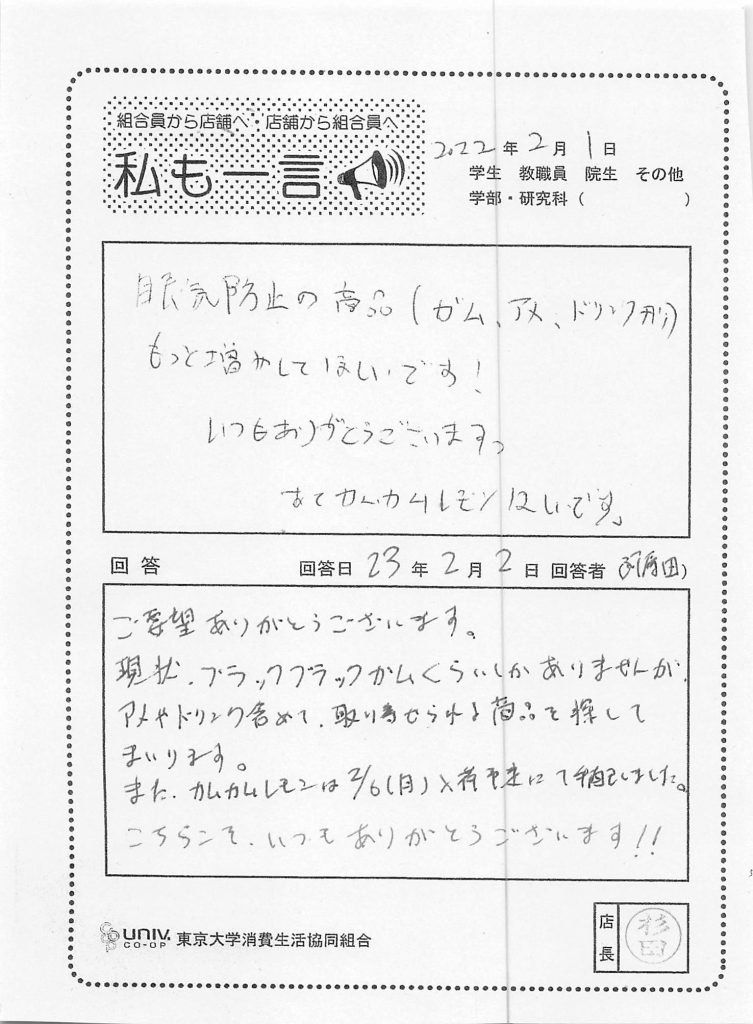 組合員から店舗へ・店舗から組合員へ
私も一言
2022年2月1日
学生 教職員 院生 その他
学部・研究科( )
眠気防止の商品(ガム、アメ、ドリンク剤)
もっと増やしてほしいです!
いつもありがとうございます。
あとカムカムレモンほしいです。
回答 回答日 23年2月2日 回答者 田)
ご要望ありがとうございます。
現状、ブラックブラックガムくらいしかありませんが、
アメやドリンク含めて、取り寄せられる商品を探して
まいります。
また、カムカムレモンは2/6(月)入荷予定にて手配しました。
こちらこそ、いつもありがとうございます!!
UNIV.
CO-OP
東京大学消費生活協同組合
店長
杉田